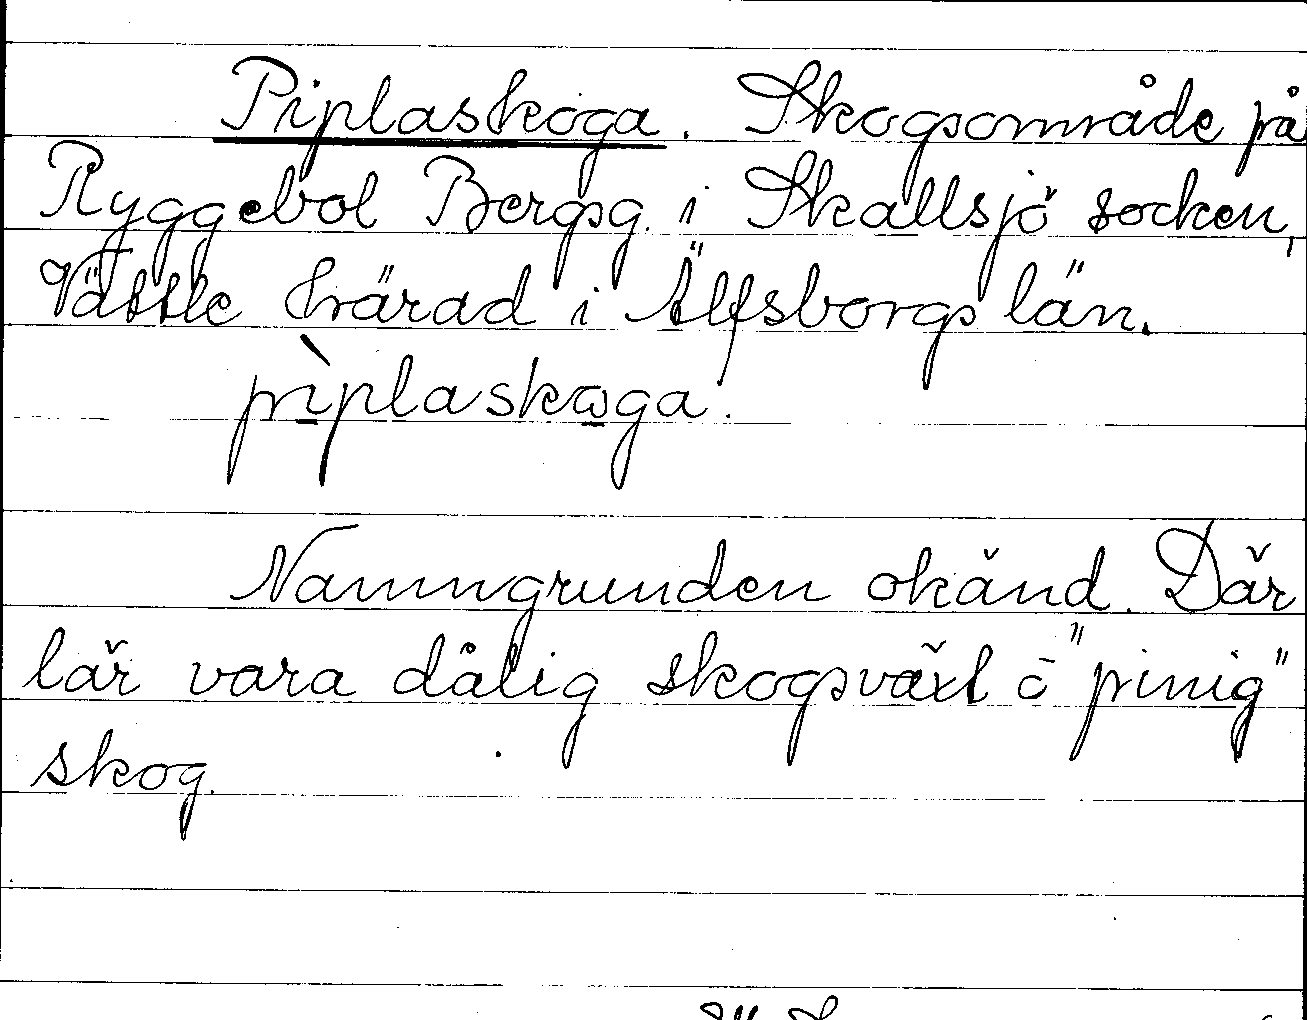 Piplaskoga. Skogsområde på
Ryggebol Bergsg. i Skallsjö socken,
Vättle härad i Älfsborgs län.
pìplaskωga.
Namngrunden okänd. Där
lär vara dålig skogsväxt o "pinig"
skog.